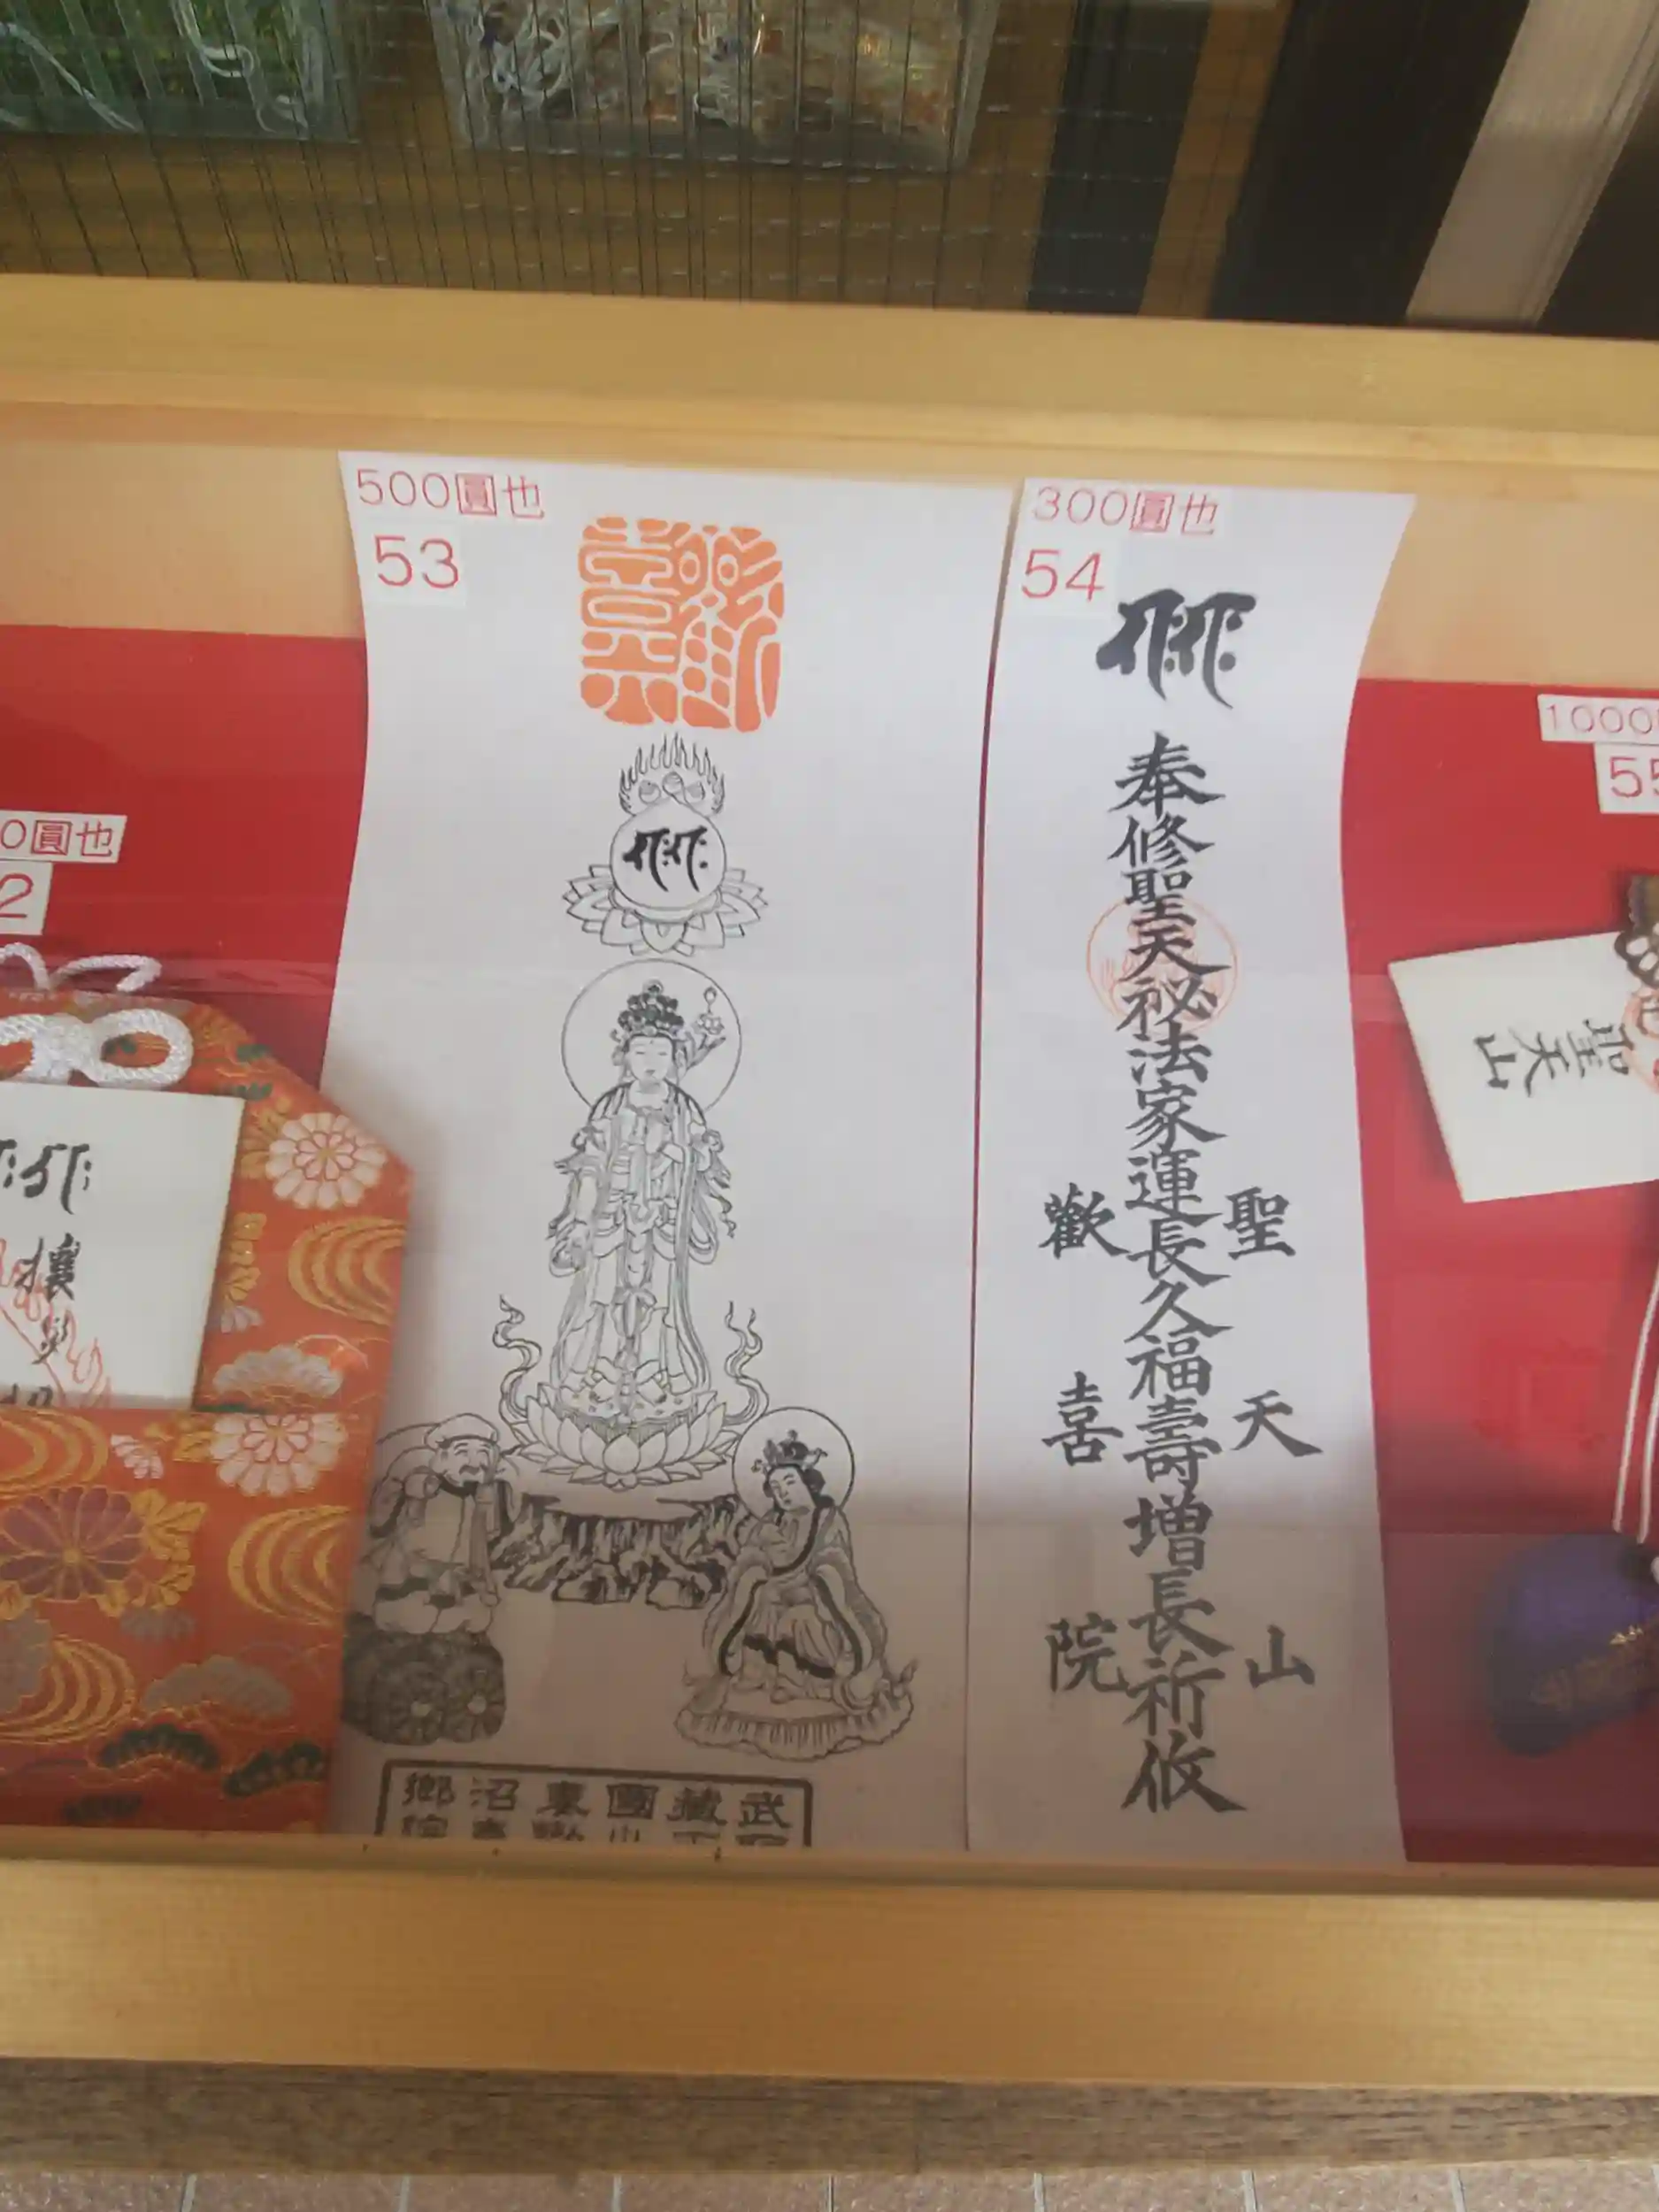 500圓也
53
武藏國東沼鄉
300圓也
54
奉修聖天祕法家運長久福壽增長祈攸
聖天山
歡喜院
0圓也
2
攘災招
1000
55
聖天山